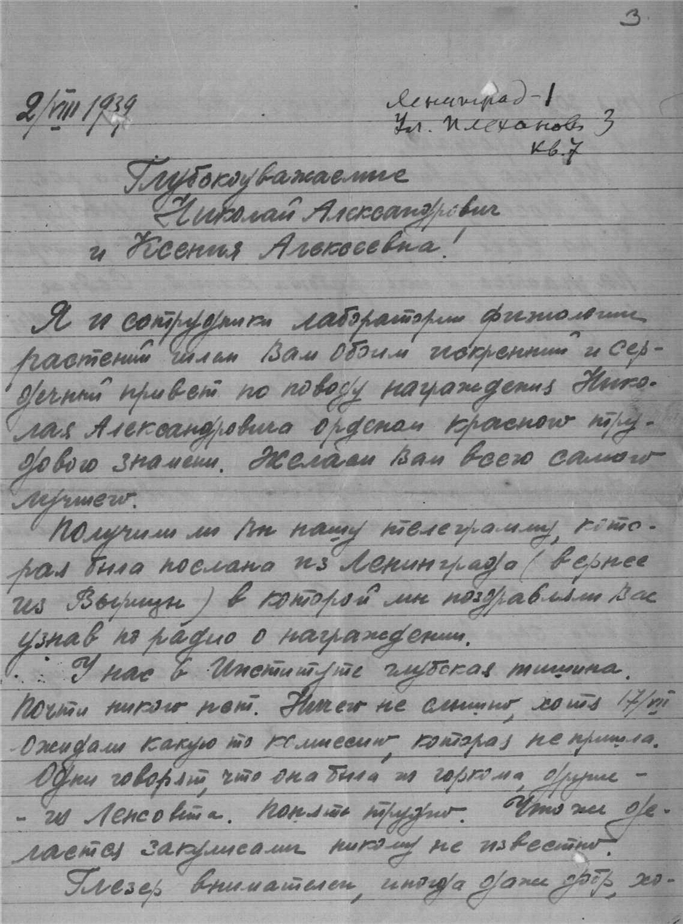 3
2/VIII 1939
Ленинград-1
Ул. Плеханова 3
кв. 7
Глубокоуважаемые
Николай Александрович
и Ксения Алексеевна!
Я и сотрудники лаборатории физиологии
растений шлем Вам Обоим искренний и сер-
дечный привет по поводу награждения Нико-
лая Александровича орденом красного тру-
дового знамени. Желаем Вам всего самого
лучшего.
Получили ли Вы нашу телеграмму, кото-
рая была послана из Ленинграда (вернее
из Вырицы) в которой мы поздравляли Вас
узнав по радио о награждении.
У нас в Институте глубокая тишина.
Почти никого нет. Ничего не слышно, хотя 17/VII
ожидали какую то комиссию, которая не пришла.
Одни говорят, что она была из горкома, другие -
- из Ленсовета. Понять трудно. Что же де-
лается за кулисами никому не известно.
Глезер внимателен, иногда даже добр, хо-